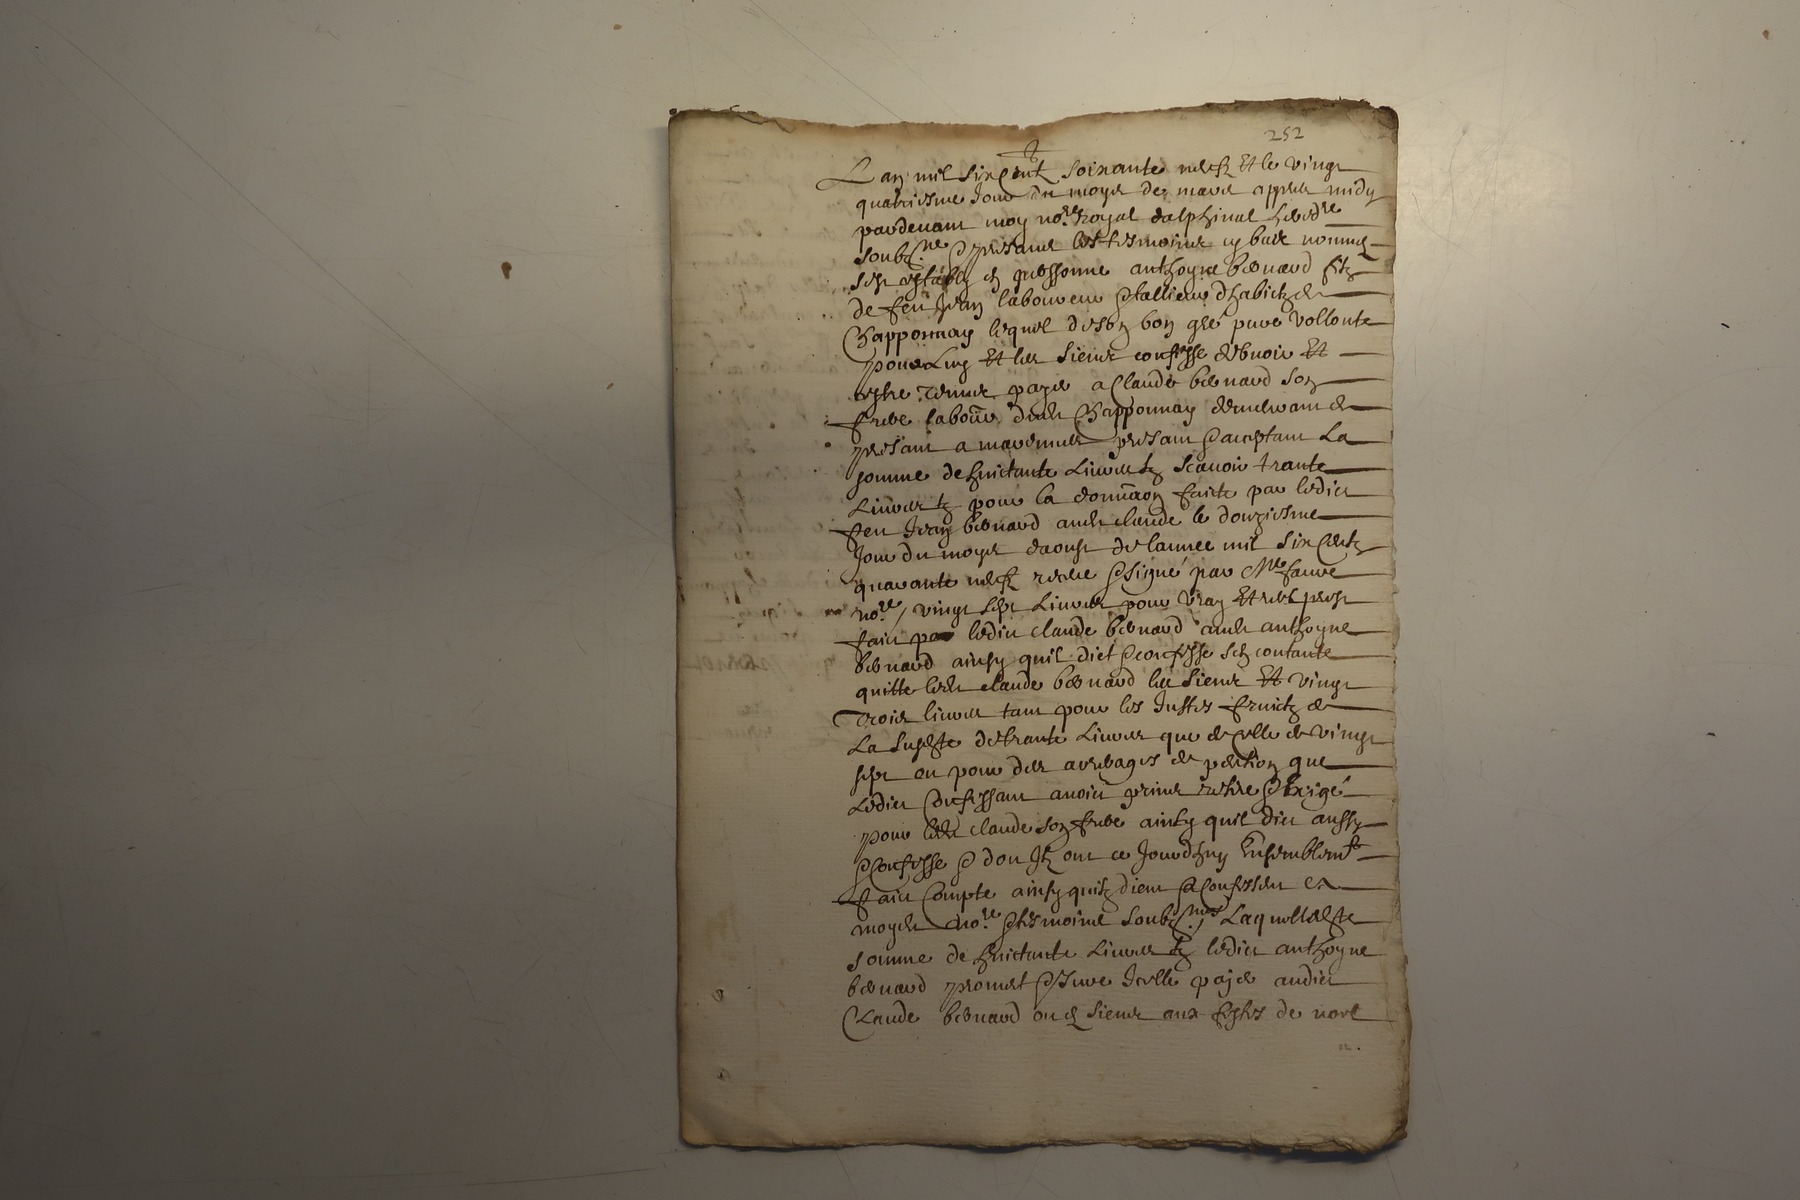 252
Lan mil six Centz soixante neufz Et le vingt
quatriesme Jour du moys de mars appres midy
pardevant moy no.re Royal dalphinal heredre
soubz.ne & presents les tesmoins cy bas nommes
sest estably en personne anthoyne bernard filz
de feu Jean laboureur & tallieur dhabitz de
Chapponnay lequel de son bon gré pure vollonte
pour Luy Et les siens confesse debvoir Et
estre tenus payer a Claude bernard son
frere labour dudt Chapponnay demeurant de
present a marennes present & acceptant La
somme de huictante Livres tz scavoir trante
Livres tz pour la donnaon faicte par ledict
feu Jean bernard audt claude le douziesme
Jour du moys daoust de lannee mil six Centz
quarante neufz receue & signé par Me faure
no.re / vingt sept Livres pour vray Et reel prest
faict par ledict claude bernard audt anthoyne
bernard ainsy quil dict & confesse sen contante
quitte ledt claude bernard les siens Et vingt
Trois livres tant pour les Justes fruictz de
La suste de trante Livres que de Celle de vingt
sept ou pour des arrerages de pention que
Ledict Confessant avoict prins retire & Exigé
pour ledt claude son frere ainsy quil dict aussy
& Confesse & dont Ilz ont ce Jourdhuy Ensemblemt
faict Compte ainsy quilz dient & Confessent Es
moys no.re & tesmoins soubz.nes / Laquelle suste
somme de huictante Livres tz ledict anthoyne
bernard promet & Jure Icelle payer audict
Claude bernard ou es siens aux festes de noel